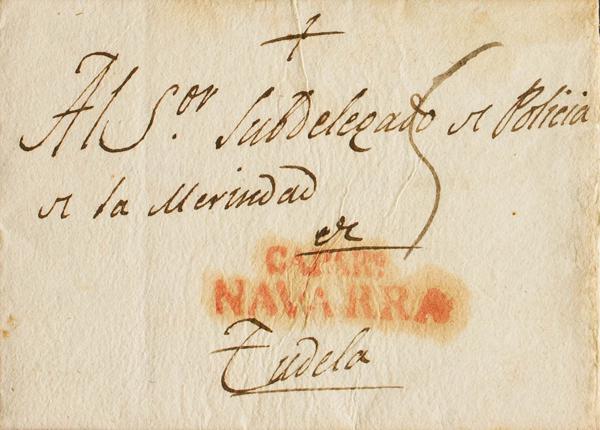 Al S.or Subdelegado de Policia
de la Merindad
de
NAVARRA
Tudela